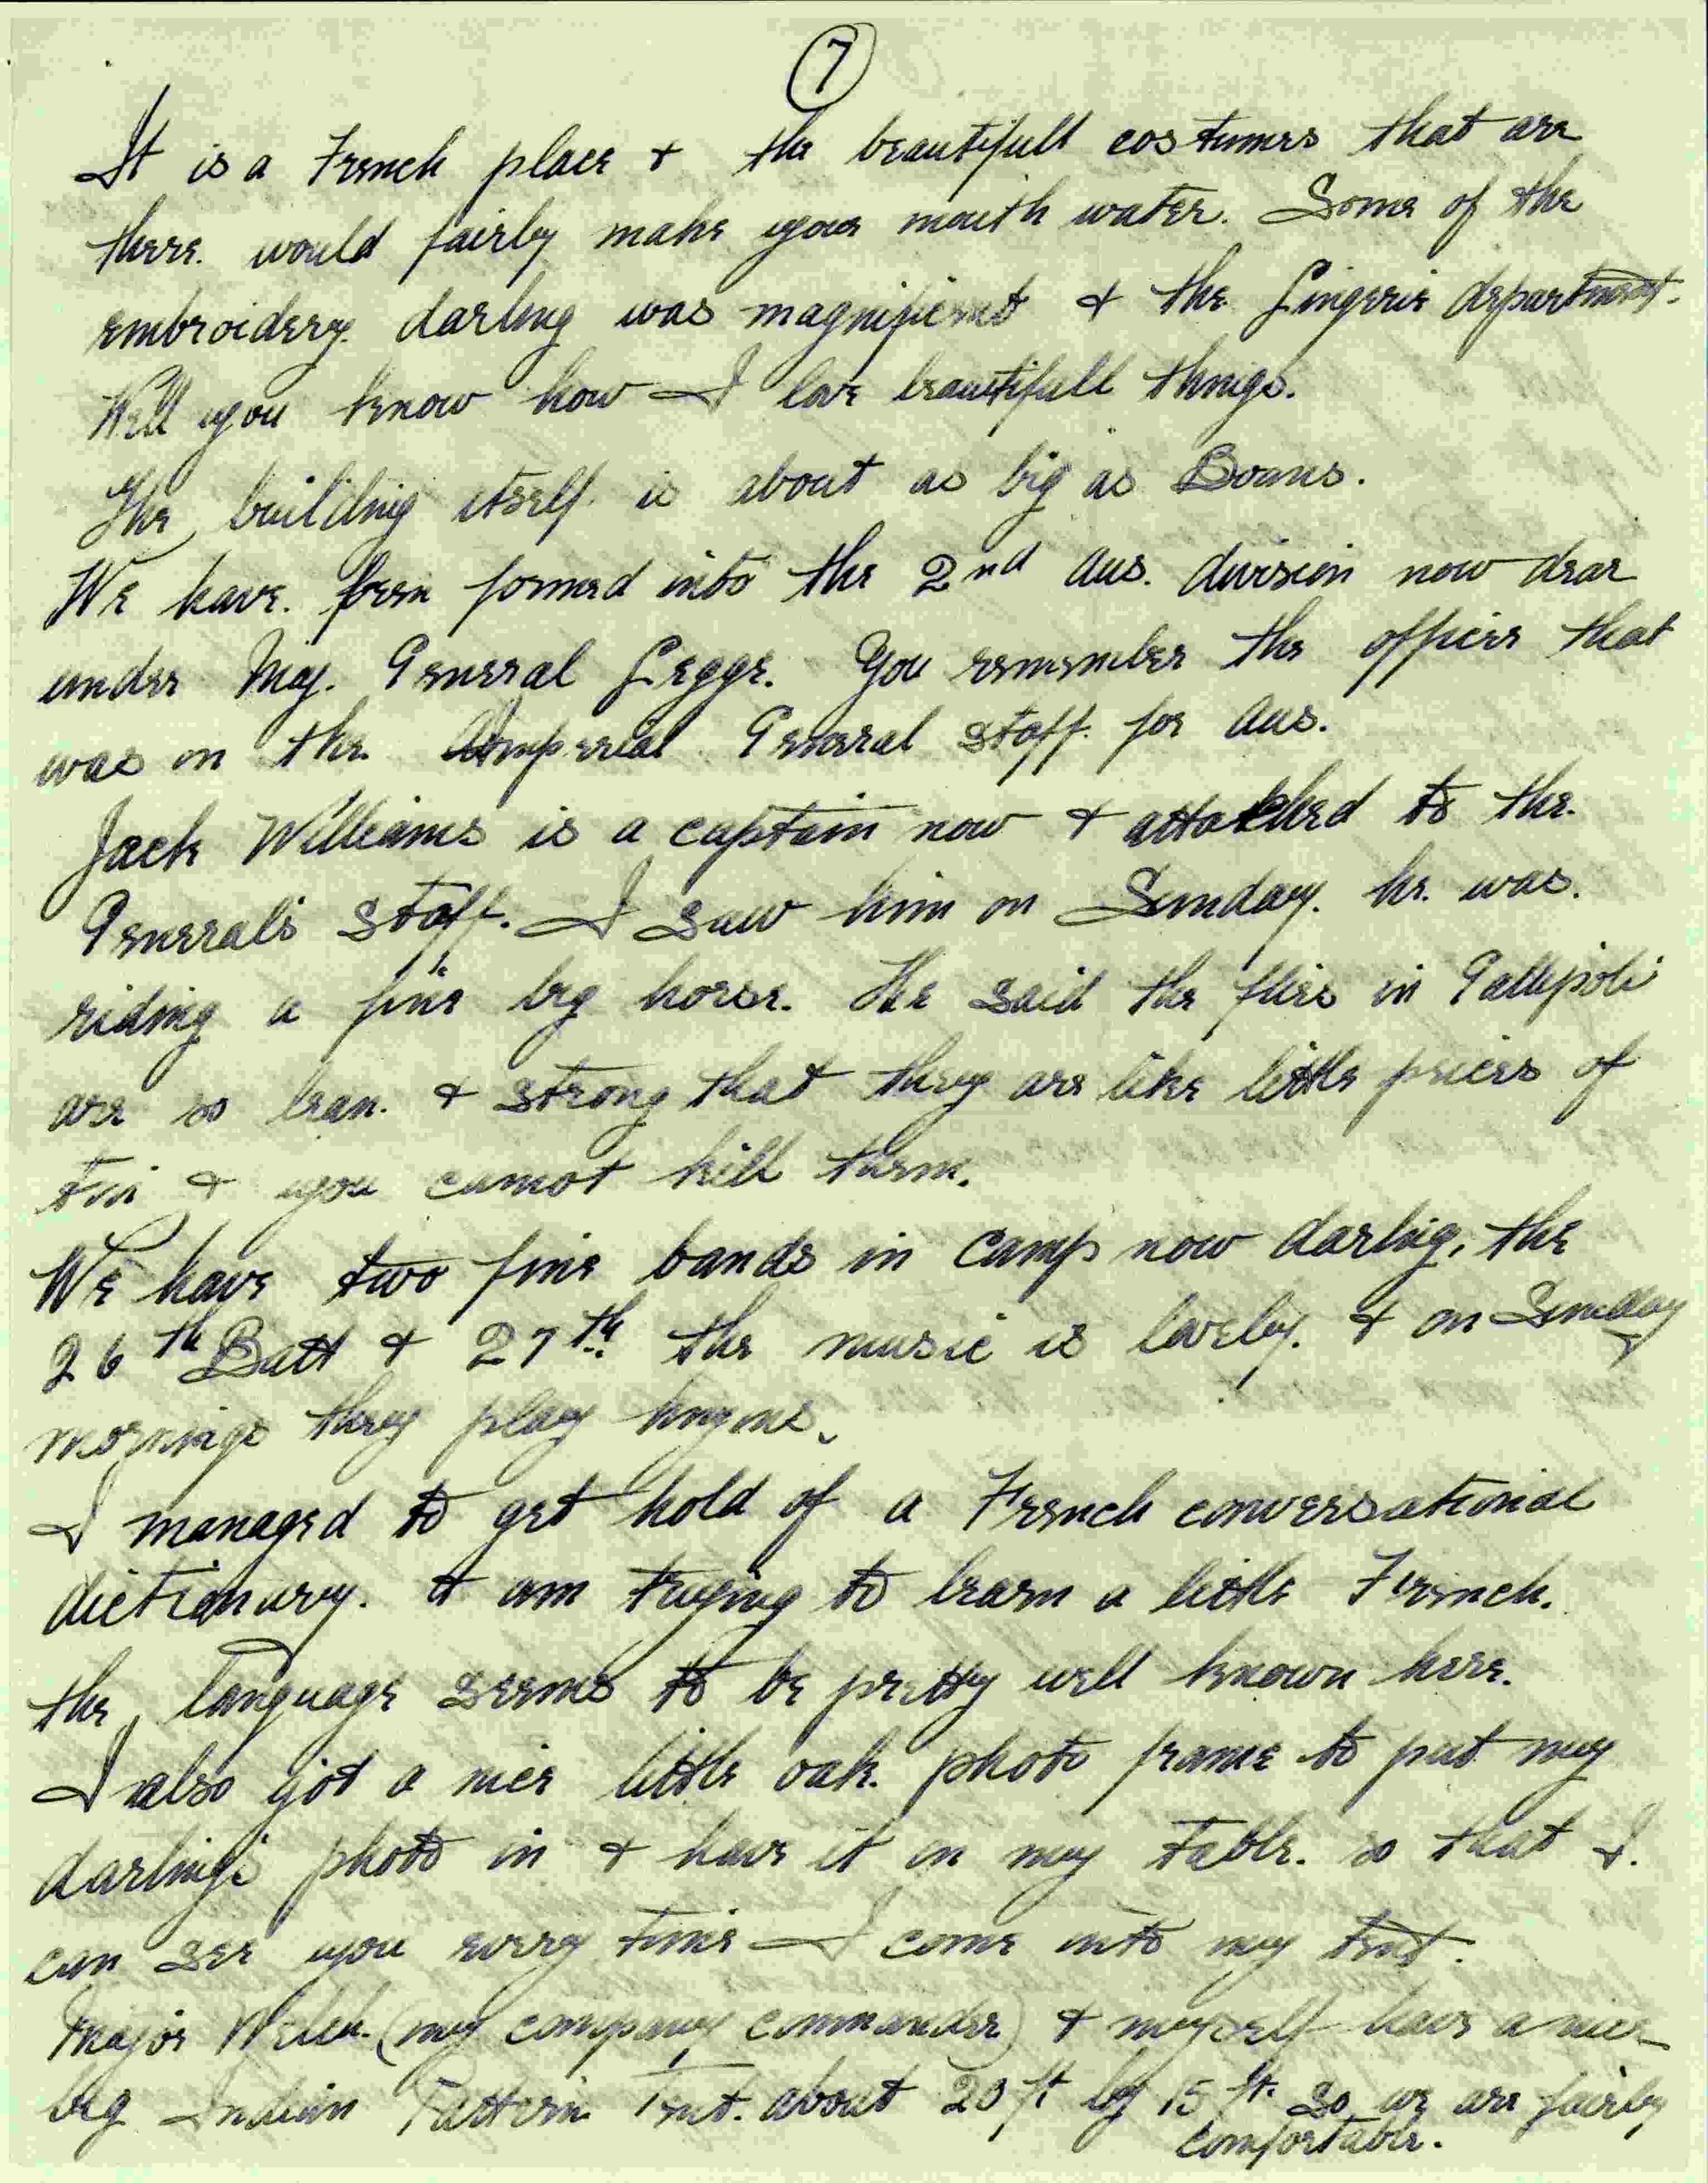 7
It is a French place & the beautifull costumes that are
there. would fairly make your mouth water. Some of the
embroidery. darling was magnificent & the Lingerie department.
Well you know how I love beautifull things.
The building itself is about as big as Boans.
We have. been formed into the 2nd Aus. division now dear
under Maj. General Legge. You remember the officer that
was on the. Imperial General staff. for Aus.
Jack Williams is a captain now & attatched to the.
General's staff. I saw him on Sunday. he. was.
riding a fine big horse. He said the flies in Gallipoli
are so lean. & strong that they are like little pieces of
tin & you cannot kill them.
We have two fine bands in camp now darling, the
26th Batt & 27th. the music is lovely. & on Sunday
mornings they play hymns.
I managed to get hold of a French conversational
dictionary. & am trying to learn a little French.
the language seems to be pretty well known here.
I also got a nice little oak. photo frame to put my
darling's photo in & have it on my table. so that I.
can see you every time I come into my tent.
Major Welch. (my company commander) & myself have a nice
big Indian Pattern Tent. about 20 ft by 15 ft. so we are fairly
comfortable.